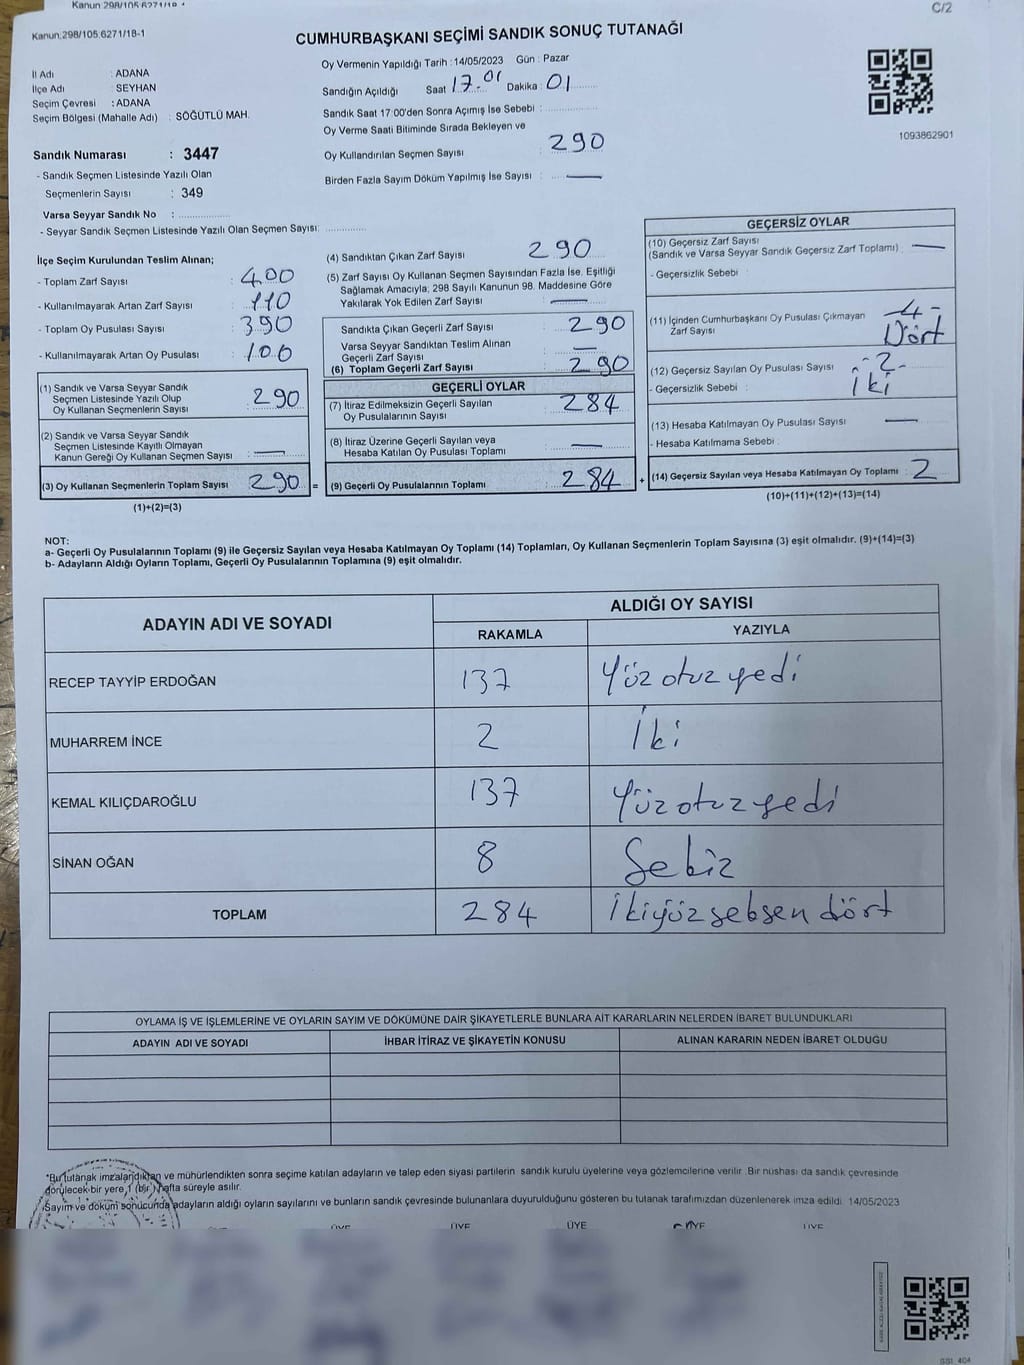 Kanun.298/105.6271/18-1
C/2
Kanun.298/105.6271/18-1
CUMHURBAŞKANI SEÇİMİ SANDIK SONUÇ TUTANAĞI
İl Adı : ADANA
İlçe Adı : SEYHAN
Seçim Çevresi : ADANA
Seçim Bölgesi (Mahalle Adı) : SÖĞÜTLÜ MAH.
Sandık Numarası : 3447
- Sandık Seçmen Listesinde Yazılı Olan
Seçmenlerin Sayısı : 349
Varsa Seyyar Sandık No :
- Seyyar Sandık Seçmen Listesinde Yazılı Olan Seçmen Sayısı:
Oy Vermenin Yapıldığı Tarih : 14/05/2023 Gün : Pazar
Sandığın Açıldığı Saat 17.01 Dakika 01
Sandık Saat 17:00'den Sonra Açımış İse Sebebi :
Oy Verme Saati Bitiminde Sırada Bekleyen ve
Oy Kullandırılan Seçmen Sayısı : 290
Birden Fazla Sayım Döküm Yapılmış İse Sayısı : —
1093862901
İlçe Seçim Kurulundan Teslim Alınan;
- Toplam Zarf Sayısı : 400
- Kullanılmayarak Artan Zarf Sayısı : 110
- Toplam Oy Pusulası Sayısı : 390
- Kullanılmayarak Artan Oy Pusulası : 100
(1) Sandık ve Varsa Seyyar Sandık
Seçmen Listesinde Yazılı Olup
Oy Kullanan Seçmenlerin Sayısı : 290
(2) Sandık ve Varsa Seyyar Sandık
Seçmen Listesinde Kayıtlı Olmayan
Kanun Gereği Oy Kullanan Seçmen Sayısı : —
(3) Oy Kullanan Seçmenlerin Toplam Sayısı : 290 =
(1)+(2)=(3)
(4) Sandıktan Çıkan Zarf Sayısı : 290
(5) Zarf Sayısı Oy Kullanan Seçmen Sayısından Fazla İse, Eşitliği
Sağlamak Amacıyla; 298 Sayılı Kanunun 98. Maddesine Göre
Yakılarak Yok Edilen Zarf Sayısı : —
Sandıkta Çıkan Geçerli Zarf Sayısı : 290
Varsa Seyyar Sandıktan Teslim Alınan
Geçerli Zarf Sayısı : —
(6) Toplam Geçerli Zarf Sayısı : 290
GEÇERLİ OYLAR
(7) İtiraz Edilmeksizin Geçerli Sayılan
Oy Pusulalarının Sayısı : 284
(8) İtiraz Üzerine Geçerli Sayılan veya
Hesaba Katılan Oy Pusulası Toplamı : —
(9) Geçerli Oy Pusulalarının Toplamı : 284 +
GEÇERSİZ OYLAR
(10) Geçersiz Zarf Sayısı
(Sandık ve Varsa Seyyar Sandık Geçersiz Zarf Toplamı) : —
- Geçersizlik Sebebi :
(11) İçinden Cumhurbaşkanı Oy Pusulası Çıkmayan
Zarf Sayısı : -4- Dört
(12) Geçersiz Sayılan Oy Pusulası Sayısı : -2-
- Geçersizlik Sebebi : iki
(13) Hesaba Katılmayan Oy Pusulası Sayısı : —
- Hesaba Katılmama Sebebi :
(14) Geçersiz Sayılan veya Hesaba Katılmayan Oy Toplamı : 2
(10)+(11)+(12)+(13)=(14)
NOT:
a- Geçerli Oy Pusulalarının Toplamı (9) ile Geçersiz Sayılan veya Hesaba Katılmayan Oy Toplamı (14) Toplamları, Oy Kullanan Seçmenlerin Toplam Sayısına (3) eşit olmalıdır. (9)+(14)=(3)
b- Adayların Aldığı Oyların Toplamı, Geçerli Oy Pusulalarının Toplamına (9) eşit olmalıdır.
ADAYIN ADI VE SOYADI
ALDIĞI OY SAYISI
RAKAMLA YAZIYLA
RECEP TAYYİP ERDOĞAN 137 Yüz otuz yedi
MUHARREM İNCE 2 İki
KEMAL KILIÇDAROĞLU 137 Yüz otuz yedi
SİNAN OĞAN 8 Sekiz
TOPLAM 284 İkiyüz seksen dört
OYLAMA İŞ VE İŞLEMLERİNE VE OYLARIN SAYIM VE DÖKÜMÜNE DAİR ŞİKAYETLERLE BUNLARA AİT KARARLARIN NELERDEN İBARET BULUNDUKLARI
ADAYIN ADI VE SOYADI İHBAR İTİRAZ VE ŞİKAYETİN KONUSU ALINAN KARARIN NEDEN İBARET OLDUĞU
*Bu tutanak imzalandıktan ve mühürlendikten sonra seçime katılan adayların ve talep eden siyasi partilerin sandık kurulu üyelerine veya gözlemcilerine verilir. Bir nüshası da sandık çevresinde
görülecek bir yere 1 (bir) hafta süreyle asılır.
Sayım ve döküm sonucunda adayların aldığı oyların sayılarını ve bunların sandık çevresinde bulunanlara duyurulduğunu gösteren bu tutanak tarafımızdan düzenlenerek imza edildi. 14/05/2023
ÜYE ÜYE ÜYE ÜYE ÜYE